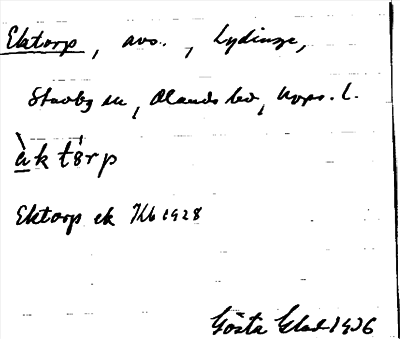 Ektorp, avs., Lydinge,
Stavby sn, Olands hd, Upps. l.
ektorp
Ektorp ek JKb 1928
Gösta Glad 1936